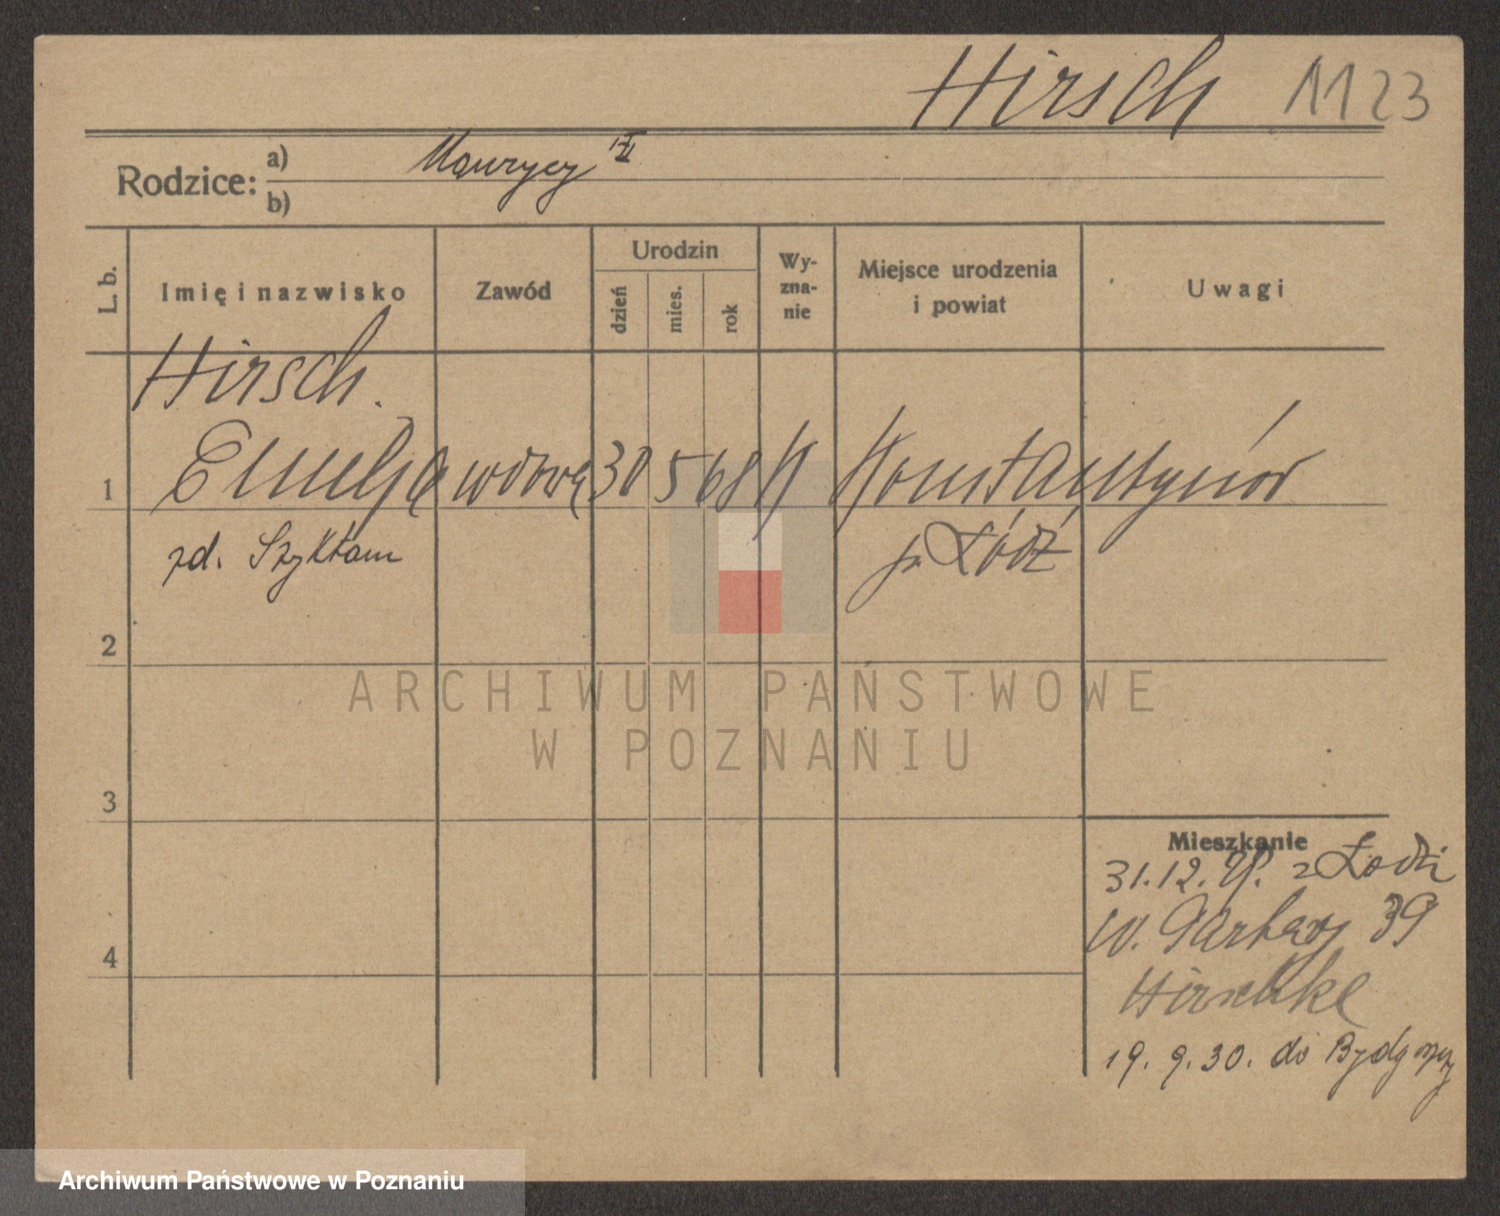 Hirsch 1123
Rodzice: a) Maurycy
b)
L. b.
Imię i nazwisko
Zawód
Urodzin
dzień
mies.
rok
Wy-
zna-
nie
Miejsce urodzenia
i powiat
Uwagi
Hirsch.
1 Emelja wdowa 30 5 68 Konstantynów
zd. Szykłam p. Łódź
2
3
4
Mieszkanie
31.12. z Łodzi
W. Garbary 39
Hirschke
19. 9. 30. do Bydgoszczy
ARCHIWUM PAŃSTWOWE
W POZNANIU
Archiwum Państwowe w Poznaniu